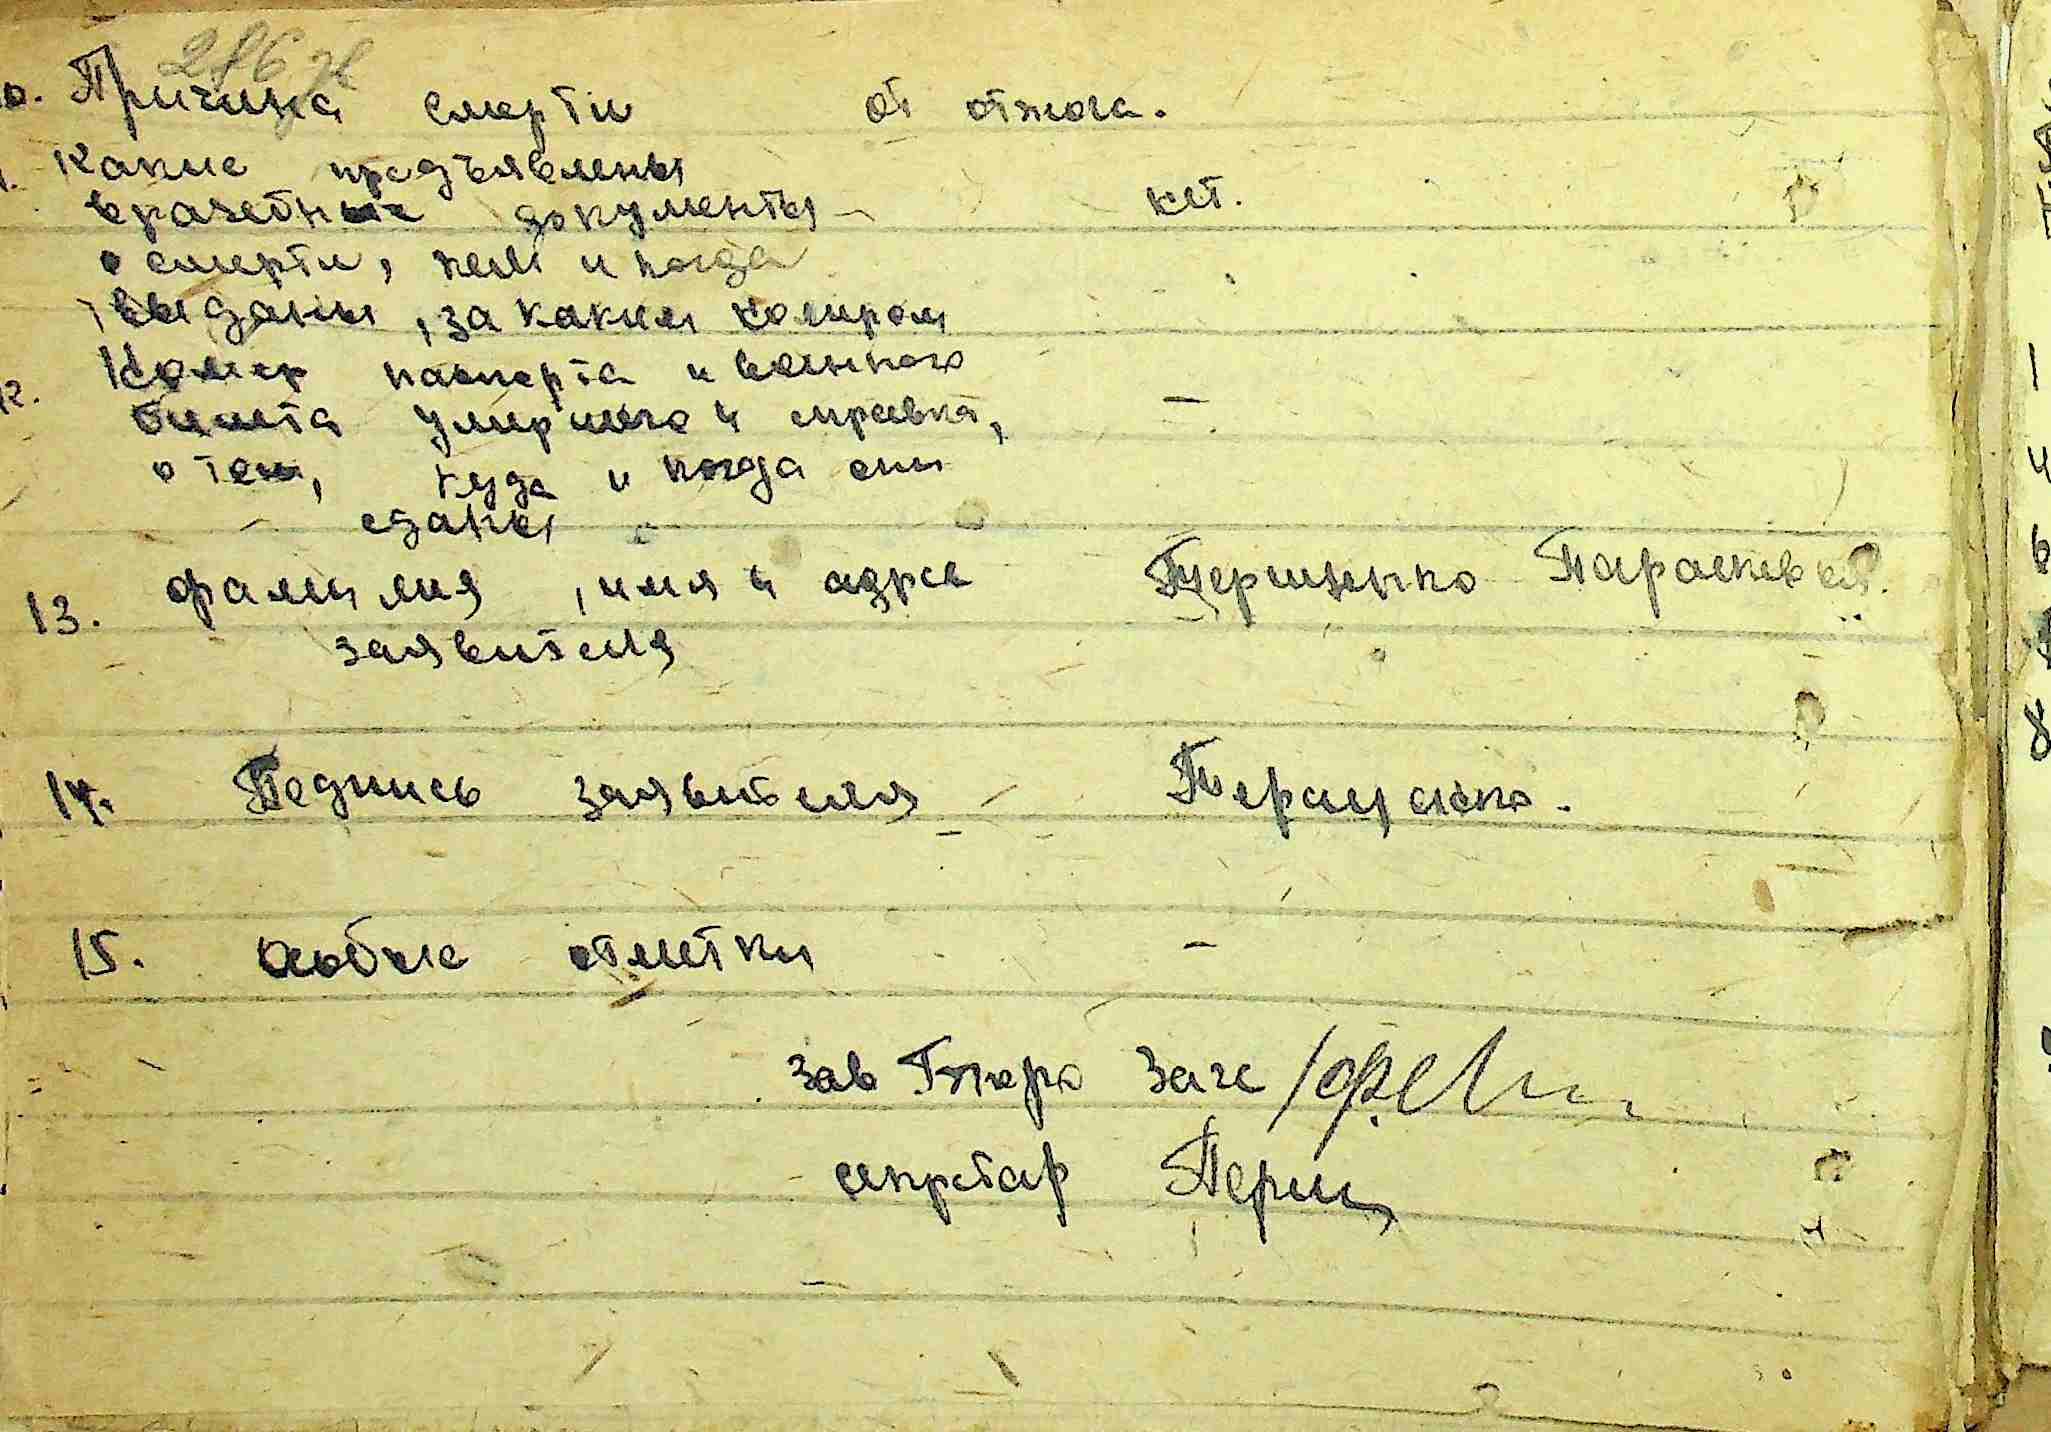 286 зв
10. Причина смерти от отжога.
11. Какие предъявлены
врачебные документы нет.
о смерти, кем и когда
выданы, за каким номиром
12. Номер паспорта и военного
билета умиршего и справка, –
о тем, куда и когда они
сданы
13. фамилия, имя и адрес Терищенко Парасковея.
заявителя
14. Подпись заявителя Терищенко.
15. Особые отметки –
зав Бюро Загс
секретар Терищ